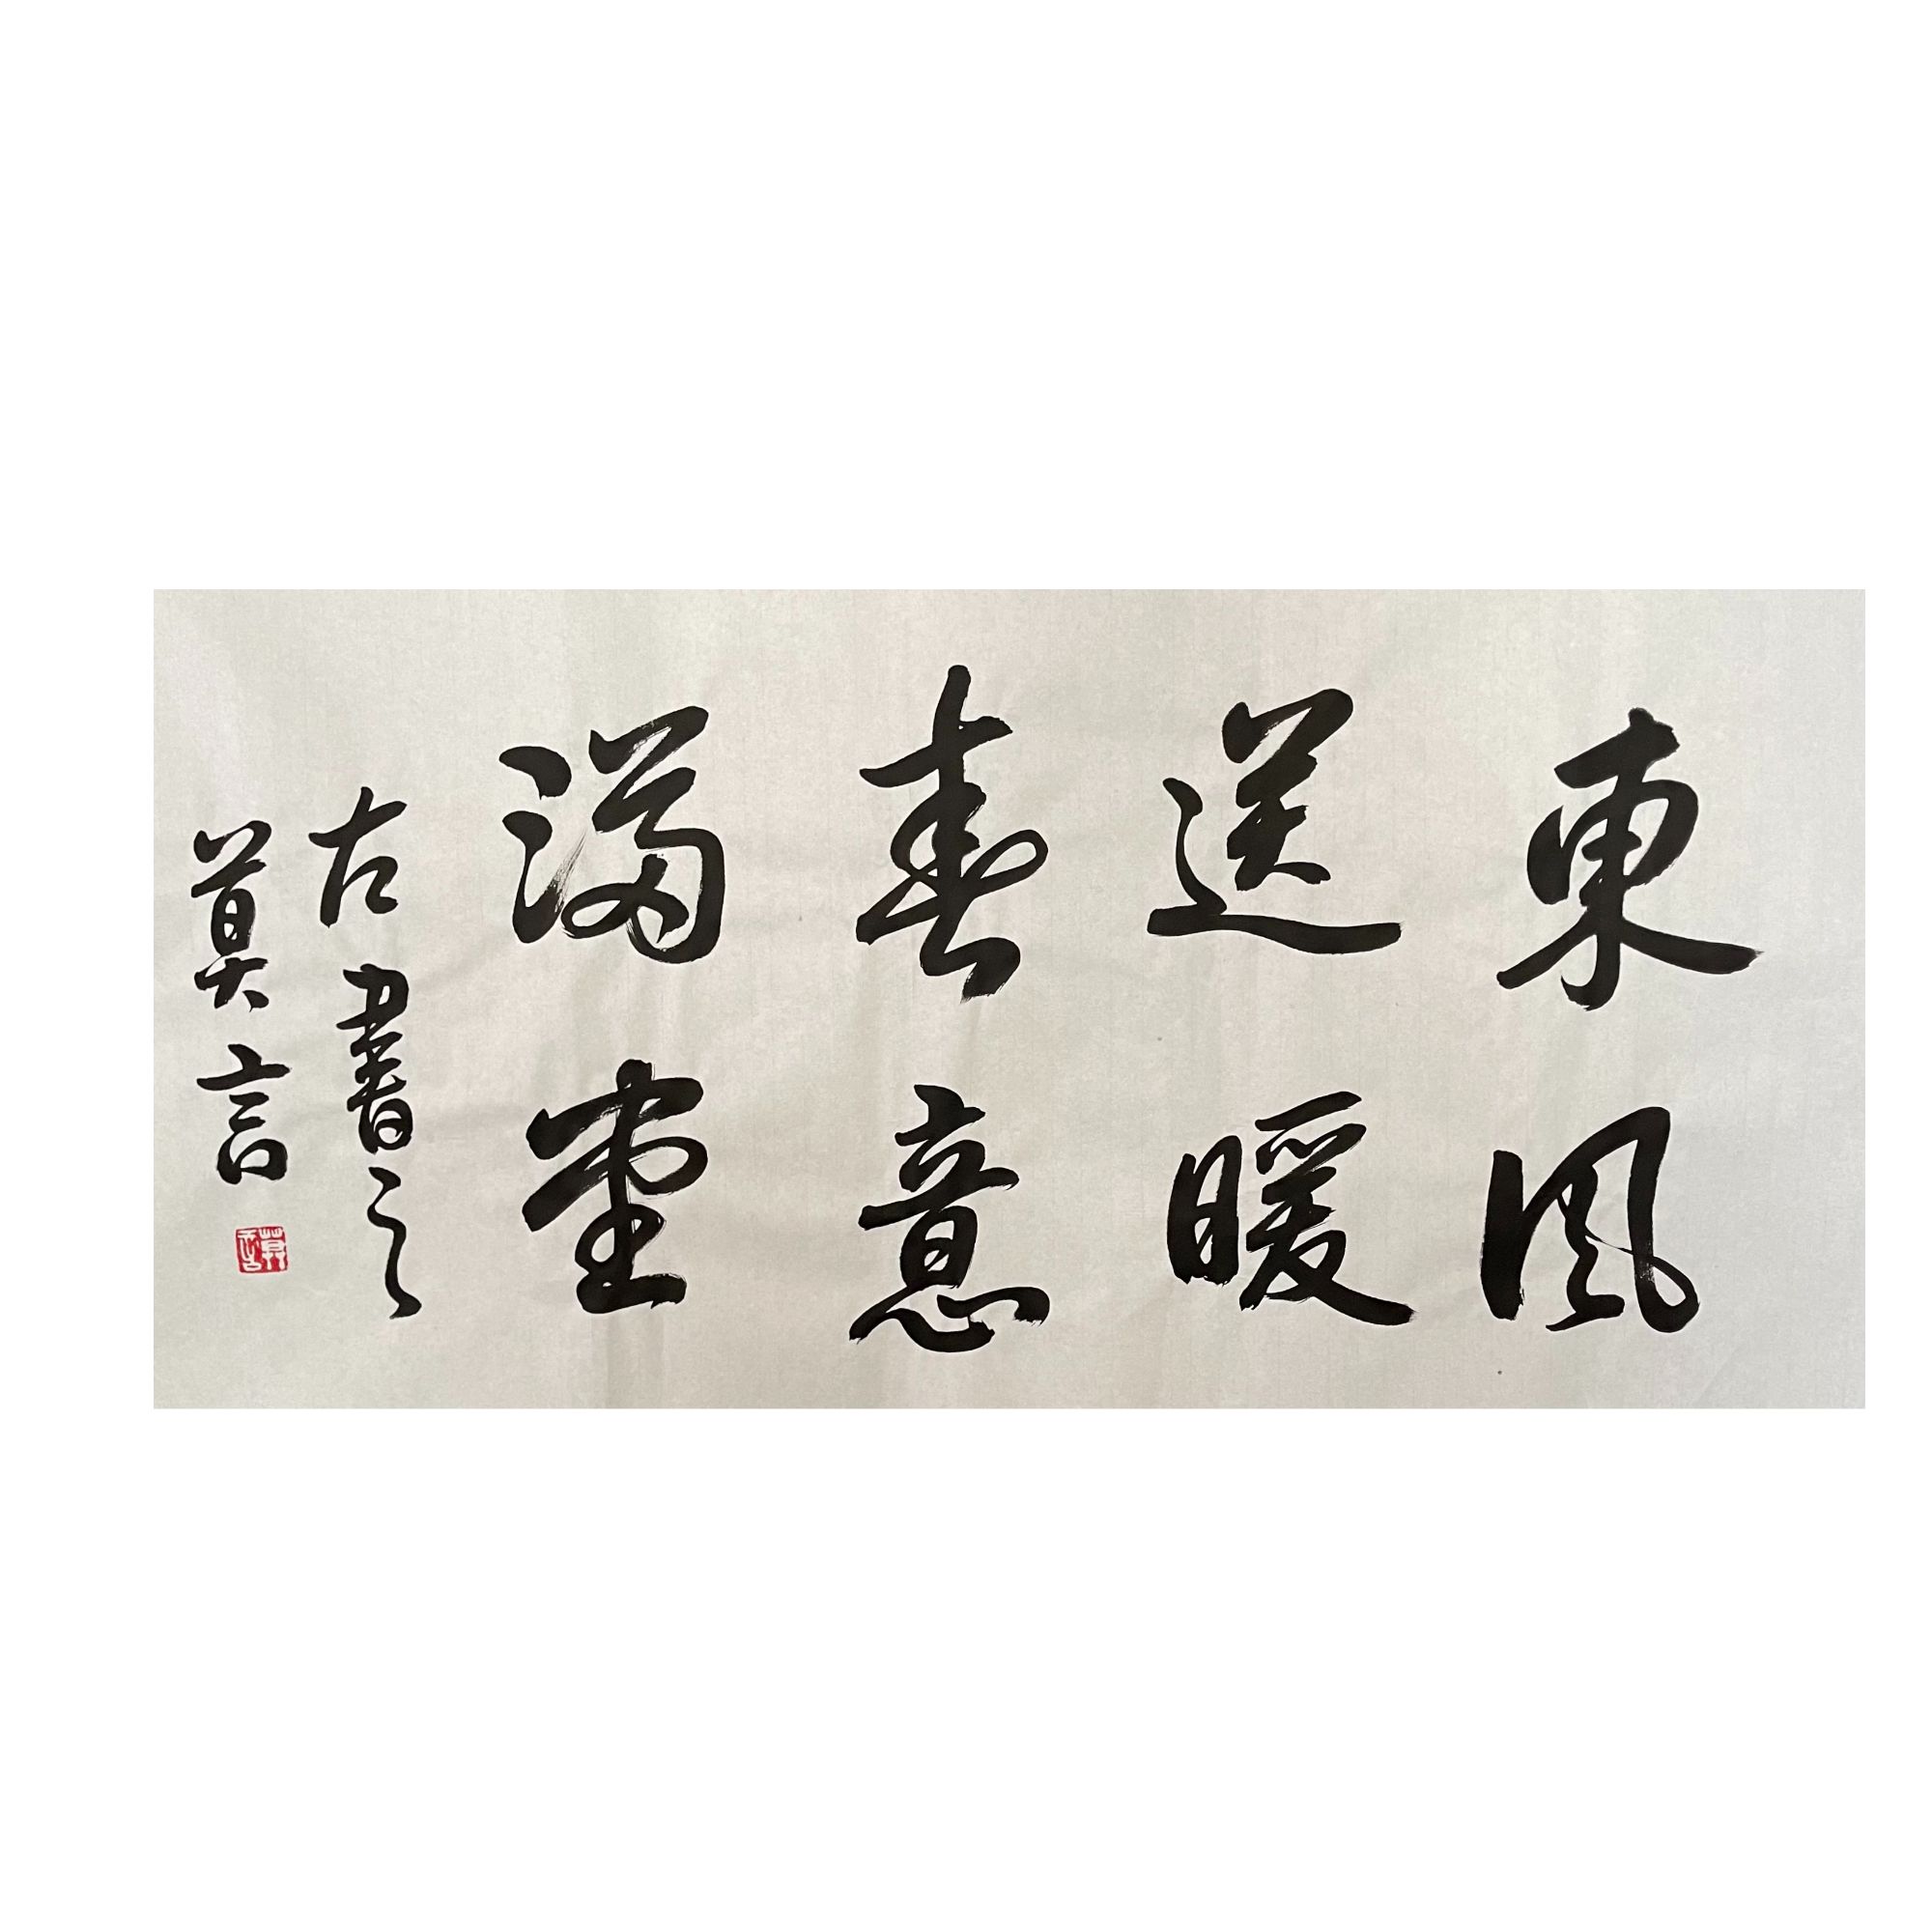 東風
送暖
春意
滿堂
左書之
莫言
莫言